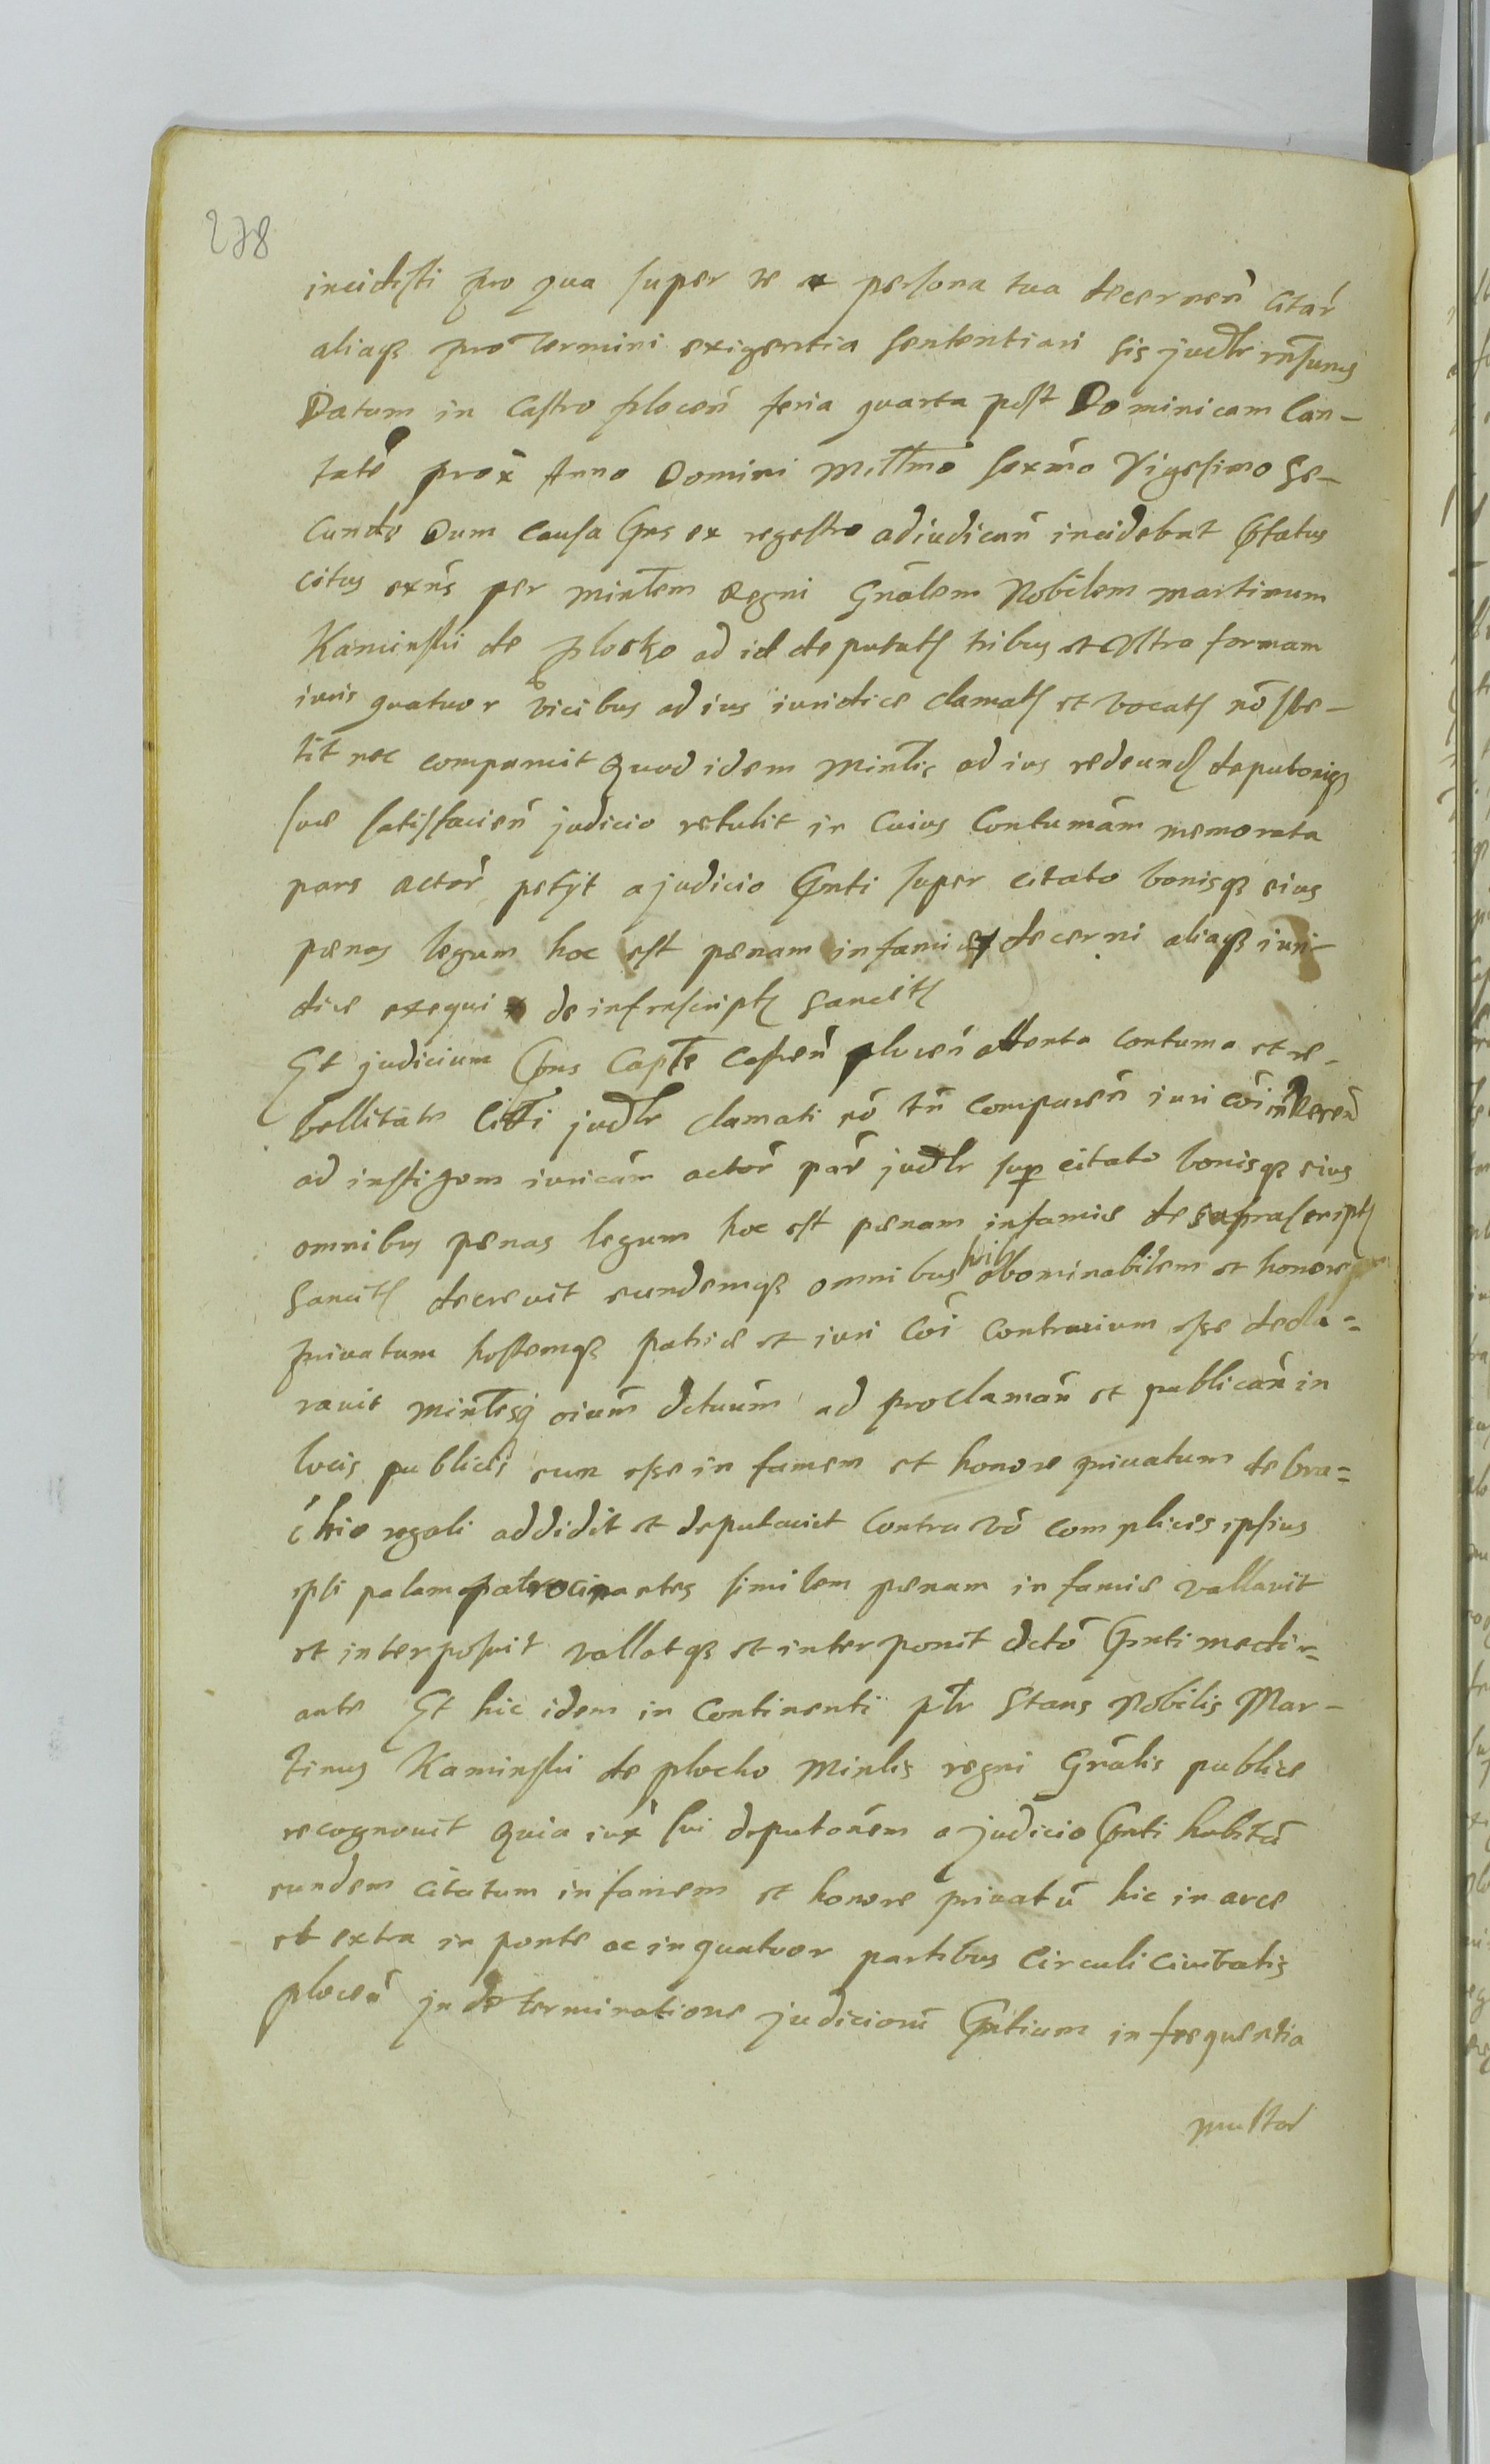 278
incidisti pro qua super te et persona tua decernen̄ citar̄
aliaq3 pro termini exigentia sententiari sis judlr rn̄surus
Datum in Castro plocen̄ feria quarta post Dominicam Can-
tate prox̄ Anno Domini Millmo sexm̄o Vigesimo Se-
cundo Dum causa Pn̄s ex regestro adiudican̄ incidebat Pr̄fatus
citus exn̄s per minlem Regni Gnālem Nobilem martinum
Kaminski de plocko ad id deputat tribus et ultra formam
iuris quatuor vicibus ad ius iuridice clamat et vocat nō ste-
tit nec comparuit Quod idem Minlis ad ius redeund deputoniq3
sue satisfacien̄ judicio retulit in Cuius Contumām memorata
pars actor̄ petÿt a judicio Pn̄ti super citato bonisq3 eius
penas legum hoc est penam infamie decerni aliaq3 iuri-
dice exequi de infrascript sancit
Et judicium Pn̄s Capte Castren̄ plocen̄ attenta contuma et re-
bellitate Citti judlr clamati nō tn̄ comparen̄ iuri cōi inheren̄
ad instigom iuricām actor̄ par̄ judlr sup citato bonisq3 eius
omnibus penas legum hoc est penam infamie de suprascript
sancit decrevit eundemq3 omnibus abominabilem et honore
privatum hostemq3 patrie et iuri cōi contrarium esse decla=
ravit minlesq oium̄ actuum̄ ad proclaman̄ et publican̄ in
locis publicis eum esse infamem et honore privatum de bra=
chio regali addidit et deputavit Contra vō complices ipsius
ipsi palam patrocinantes similem penam infamie vallavit
et interposuit vallatq3 et interponit dctō Pn̄ti medi=
ante Et hic idem in continenti ptr Stans Nobilis Mar-
tinus Kaminski de plocko Minlis regni Gnālis publice
recognovit Quia iux̄ sui deputonem a judicio Pn̄ti habitā
eundem citatum infamem et honore privatū hic in arce
et extra in ponte ac in quatuor partibus Circuli Civitatis
plocen̄ in determinatione judiciorū Pn̄tium in frequentia
multor